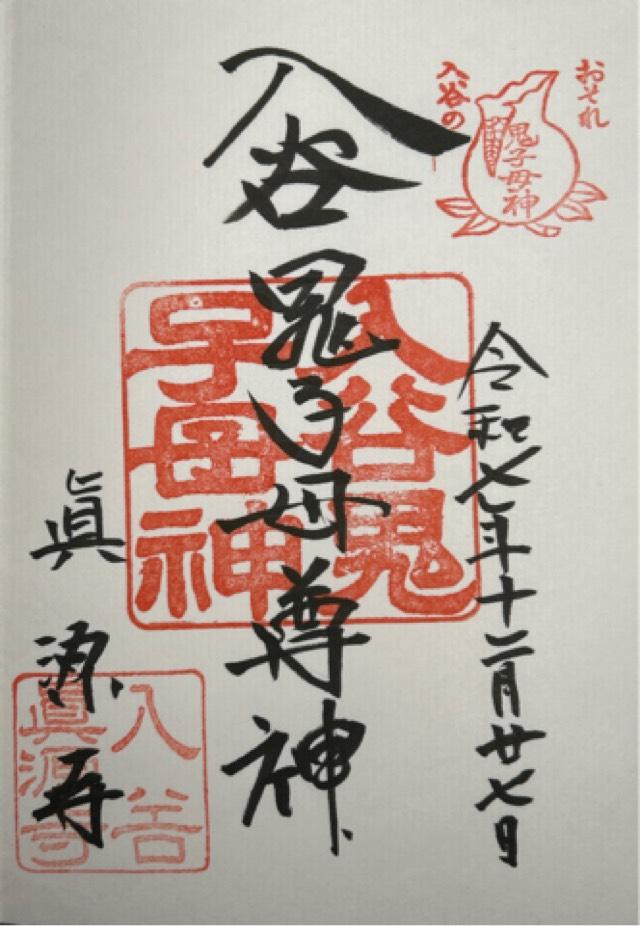 おそれ
入谷の
鬼子母神
令和七年十二月廿七日
入谷鬼子母尊神
入谷鬼
子母神
眞源寺
入谷
眞源寺